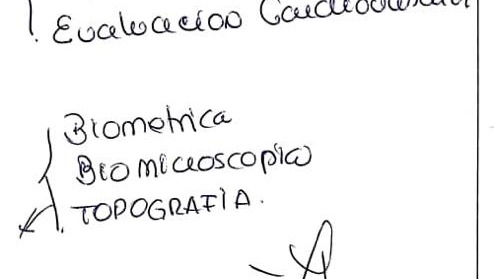 ! Evaluacion Cardiovascular
Biometrica
Biomicroscopia
TOPOGRAFIA.